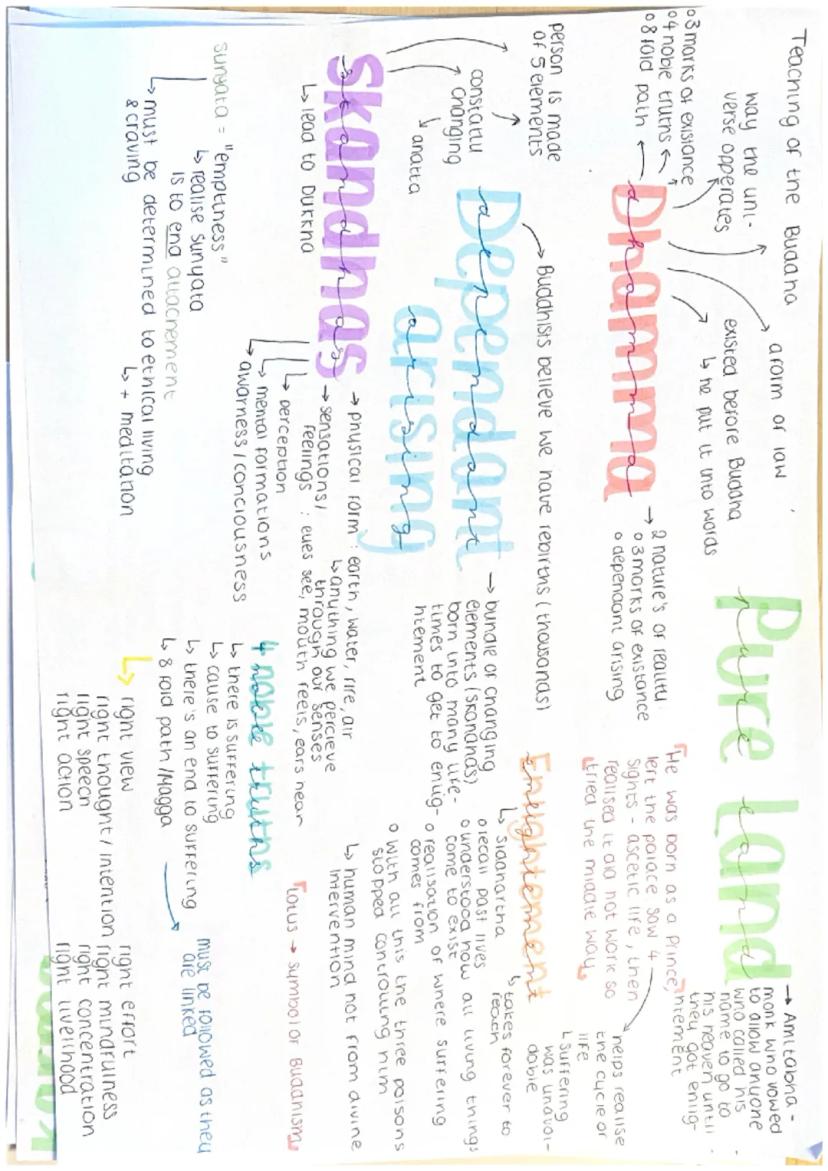 Teaching of the Buddha
way the uni-
verse opperates
o 3 marks of existance
o 4 noble truths
o 8 fold path
Dhamma
dhamma
araim or law
existed before Buddha
↳ he put it into words
→ 2 nature's of reality
o 3 marks of existance
o dependant arising
Pure Land
pure land
→ Amitabha -
monk who vowed
to allow anyone
who called his
name to go to
his heaven until
they got enlig-
ntement
He was born as a Prince,
left the palace saw 4
sights - ascetic life, then
realised it did not work so
tried the middle way
helps realise
the cycle of
life
↳ suffering
was unavoi-
dable
person is made
of 5 elements
constatly
changing
↓
anatta
→ Buddhists believe we have rebirths (thousands)
Dependant
dependant
arising
arising
→ bundle of changing
elements (skandhas)
born into many life-
times to get to enlig-
htement
Enlightement
enlightement
↳ takes forever to
reach
↳ Siddhartha
o recall past lives
o understood how all living things
come to exist
o realisation of where suffering
comes from
o with all this the three poisons
stopped controlling him
↳ human mind not from divine
intervention
Skandhas
skandhas
↳ lead to Dukkha
→ physical form : earth, water, fire, air
↳ anything we percieve
through our senses
→ sensations/
feelings : eyes see, mouth feels, ears hear
↳ perception
↳ mental formations
→ awarness / conciousness
sunyata = "emptiness"
↳ realise sunyata
is to end attachement
↳ must be determined to ethical living
& craving
↳ + meditation
4 noble truths
↳ there is suffering
↳ cause to suffering
↳ there's an end to suffering
↳ 8 fold path / Magga
must be followed as they
are linked
lotus → symbol of Buddhism
↳ right view
right thought / intention
right speech
right action
right effort
right mindfulness
right concentration
right livelihood